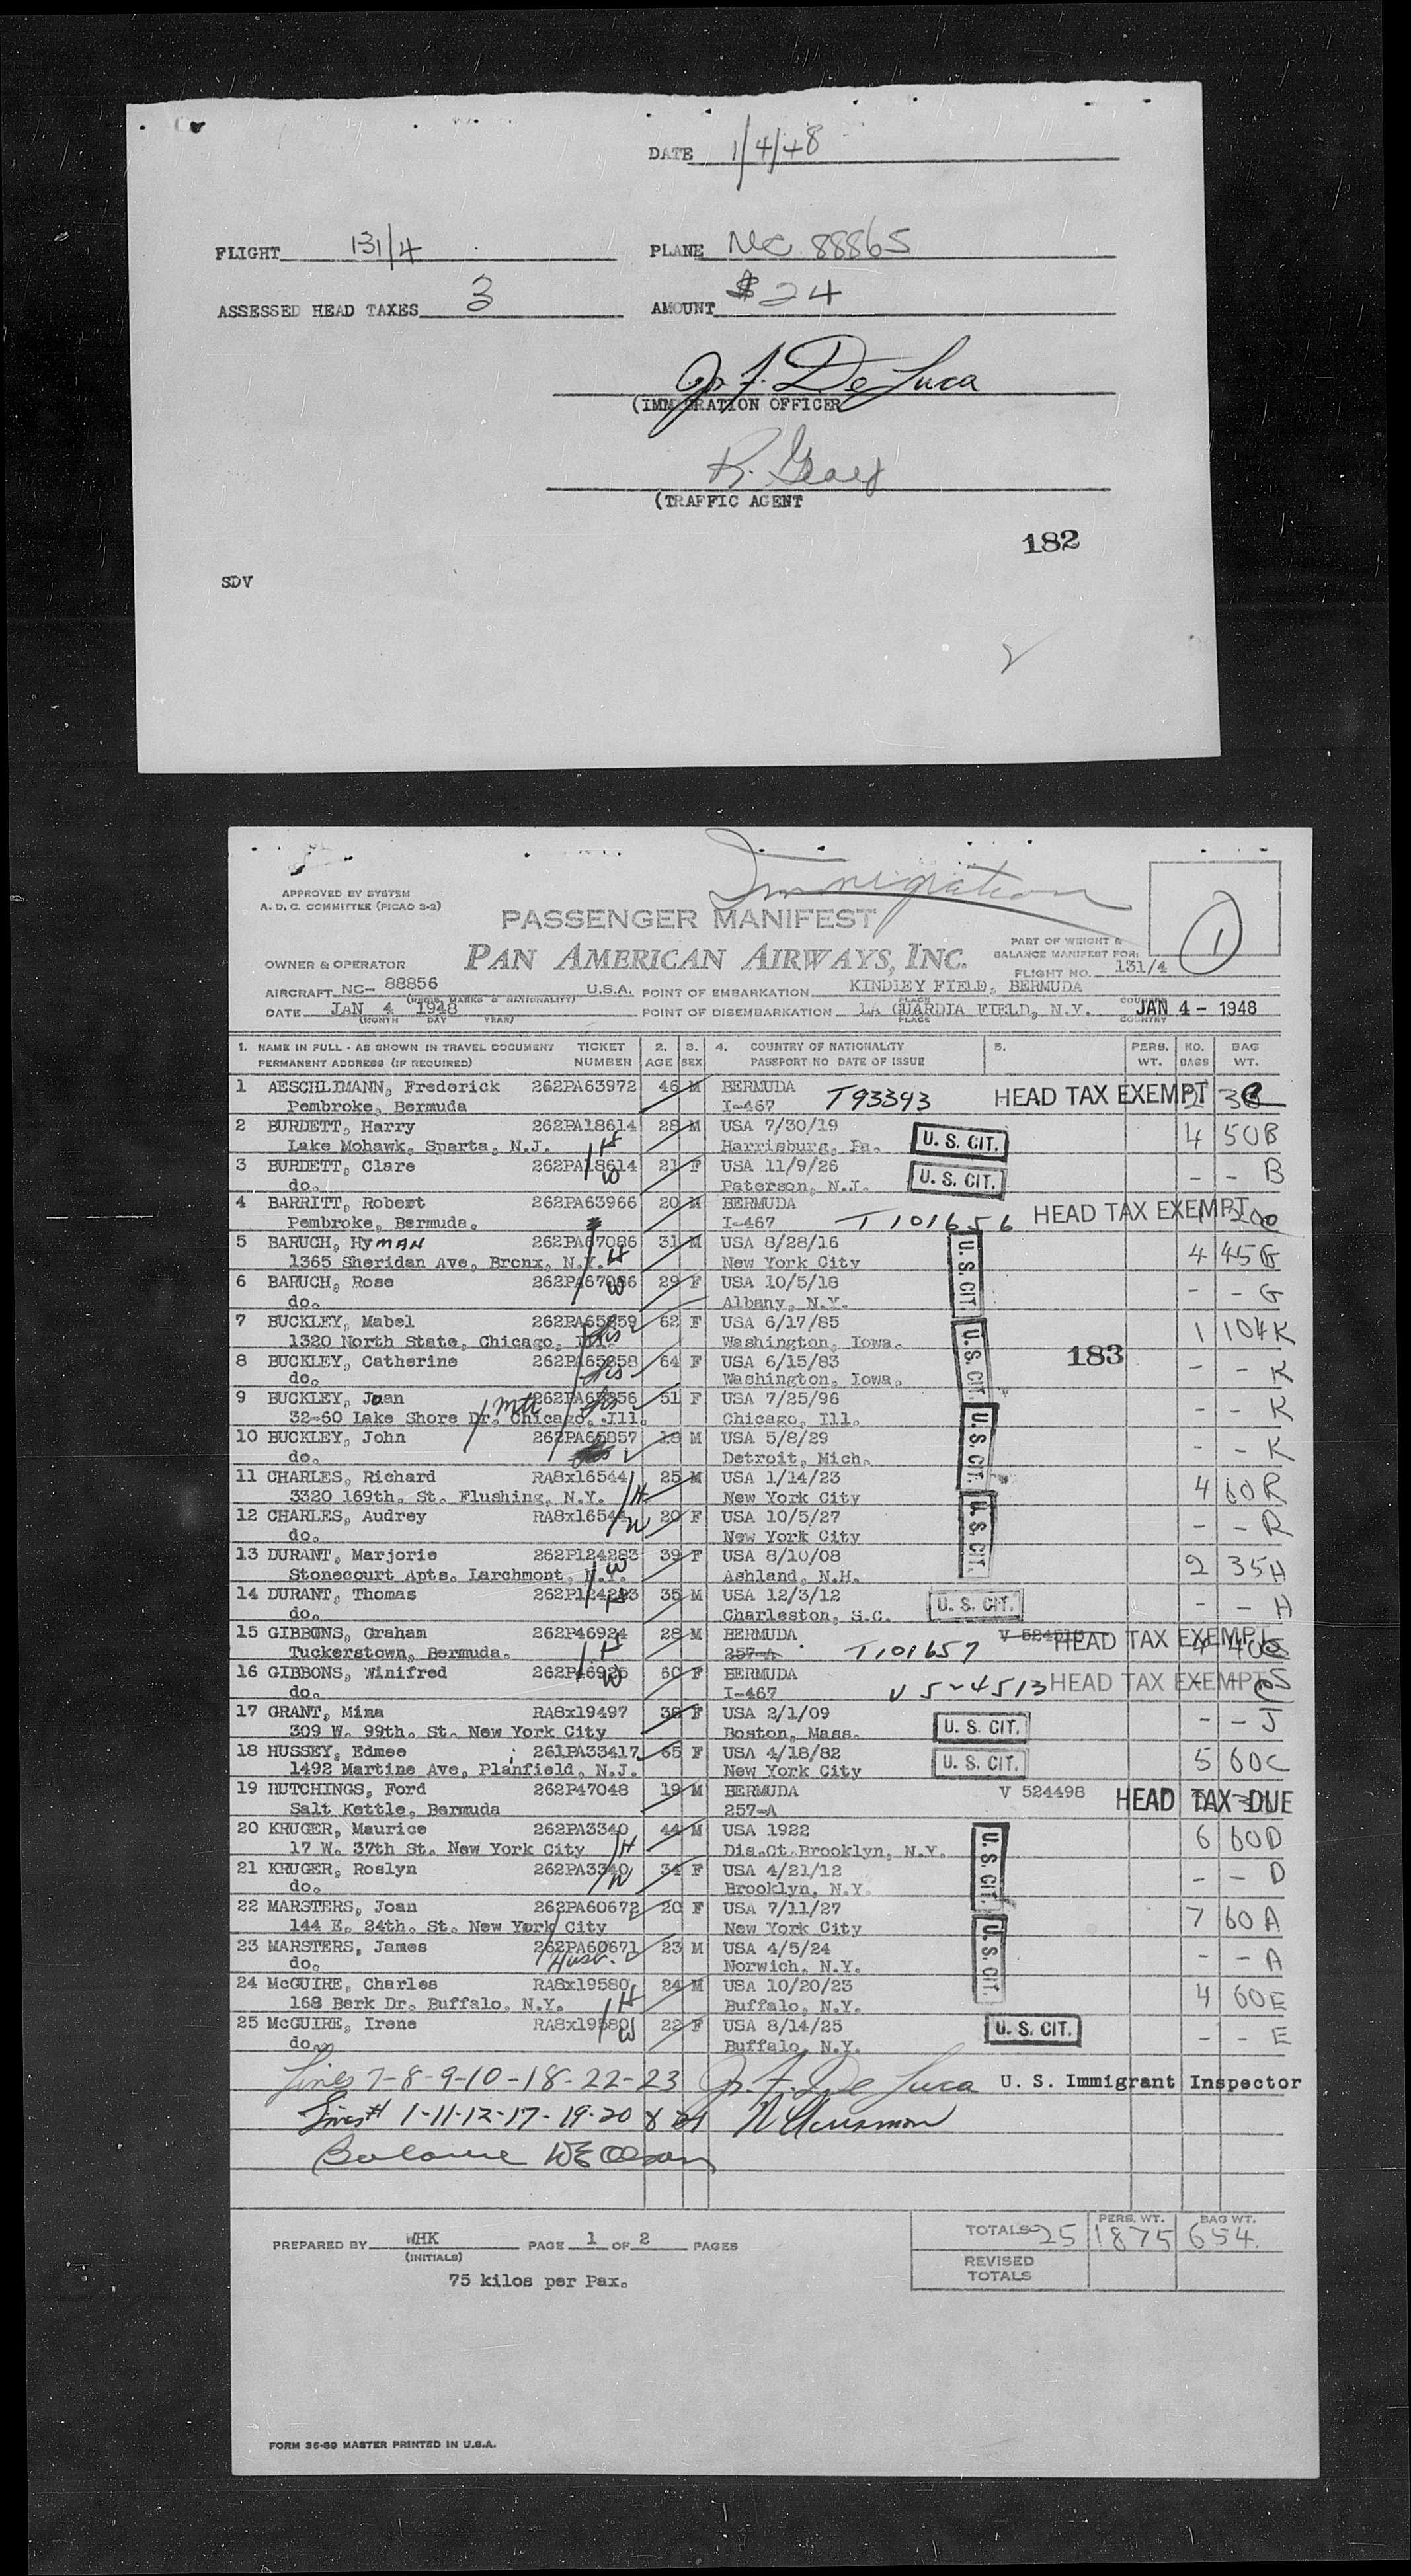 DATE 1/4/48
FLIGHT 131/4 PLANE NC 88865
ASSESSED HEAD TAXES 3 AMOUNT $24
J. F. De Luca
(IMMIGRATION OFFICER
R.
(TRAFFIC AGENT
182
SDV
Immigration
APPROVED BY SYSTEM
A. D. C. COMMITTEE (PICAO S-2)
PASSENGER MANIFEST
1
PAN AMERICAN AIRWAYS, INC.
PART OF WEIGHT &
BALANCE MANIFEST FOR:
OWNER & OPERATOR
FLIGHT NO. 131/4
AIRCRAFT NC- 88856 U.S.A. POINT OF EMBARKATION KINDLEY FIELD, BERMUDA
(REGIS. MARKS & NATIONALITY) PLACE COUNTRY
DATE JAN 4 1948 POINT OF DISEMBARKATION LA GUARDIA FIELD, N.Y. JAN 4 - 1948
(MONTH DAY YEAR) PLACE COUNTRY
1. NAME IN FULL - AS SHOWN IN TRAVEL DOCUMENT TICKET 2. 3. 4. COUNTRY OF NATIONALITY 5. PERS. NO. BAG
PERMANENT ADDRESS (IF REQUIRED) NUMBER AGE SEX PASSPORT NO DATE OF ISSUE WT. BAGS WT.
1 AESCHLIMANN, Frederick 262PA63972 46 M BERMUDA HEAD TAX EXEMPT
Pembroke, Bermuda I-467 T93393
2 BURDETT, Harry 262PA18614 28 M USA 7/30/19 4 50 B
Lake Mohawk, Sparta, N.J. H Harrisburg, Pa. U. S. CIT.
3 BURDETT, Clare 262PA18614 21 F USA 11/9/26 U. S. CIT. - - B
do. W Paterson, N.J.
4 BARRITT, Robert 262PA63966 20 M BERMUDA HEAD TAX EXEMPT
Pembroke, Bermuda. I-467 T101656
5 BARUCH, HyMAN 262PA67086 31 M USA 8/28/16 U. S. CIT. 4 45 G
1365 Sheridan Ave, Bronx, N.Y. H New York City
6 BARUCH, Rose 262PA67086 29 F USA 10/5/18 - - G
do. W Albany, N.Y.
7 BUCKLEY, Mabel 262PA65859 62 F USA 6/17/85 U. S. CIT. 1 104 K
1320 North State, Chicago, Ill. Sis Washington, Iowa.
8 BUCKLEY, Catherine 262PA65858 64 F USA 6/15/83 183 - - K
do. Sis Washington, Iowa.
9 BUCKLEY, Joan 262PA65856 51 F USA 7/25/96 - - K
32-60 Lake Shore Dr. Chicago, Ill. Mth Sis Chicago, Ill. U. S. CIT.
10 BUCKLEY, John 262PA65857 18 M USA 5/8/29 - - K
do. Detroit, Mich.
11 CHARLES, Richard RA8x16544 25 M USA 1/14/23 4 60 R
3320 169th. St. Flushing, N.Y. H New York City U. S. CIT.
12 CHARLES, Audrey RA8x16544 20 F USA 10/5/27 - - R
do. W New York City
13 DURANT, Marjorie 262P124283 39 F USA 8/10/08 2 35 H
Stonecourt Apts. Larchmont, N.Y. W Ashland, N.H.
14 DURANT, Thomas 262P124283 35 M USA 12/3/12 U. S. CIT. - - H
do. H Charleston, S.C.
15 GIBBONS, Graham 262P46924 28 M BERMUDA HEAD TAX EXEMPT
Tuckerstown, Bermuda. H 257-A T101657
16 GIBBONS, Winifred 262P46925 60 F BERMUDA HEAD TAX EXEMPT S
do. W I-467 V 524513
17 GRANT, Mina RA8x19497 38 F USA 2/1/09 U. S. CIT. - - J
309 W. 99th. St. New York City Boston, Mass.
18 HUSSEY, Edmee 261PA33417 65 F USA 4/18/82 U. S. CIT. 5 60 C
1492 Martine Ave, Planfield, N.J. New York City
19 HUTCHINGS, Ford 262P47048 19 M BERMUDA V 524498 HEAD TAX DUE
Salt Kettle, Bermuda 257-A
20 KRUGER, Maurice 262PA3340 44 M USA 1922 U. S. CIT. 6 60 D
17 W. 37th St. New York City H Dis.Ct. Brooklyn, N.Y.
21 KRUGER, Roslyn 262PA3340 34 F USA 4/21/12 - - D
do. W Brooklyn, N.Y.
22 MARSTERS, Joan 262PA60672 20 F USA 7/11/27 U. S. CIT. 7 60 A
144 E. 24th. St. New York City New York City
23 MARSTERS, James 262PA60671 23 M USA 4/5/24 - - A
do. Husb. Norwich, N.Y.
24 McGUIRE, Charles RA8x19580 24 M USA 10/20/23 4 60 E
168 Berk Dr. Buffalo, N.Y. H Buffalo, N.Y.
25 McGUIRE, Irene RA8x19580 22 F USA 8/14/25 U. S. CIT. - - E
do. W Buffalo, N.Y.
Lines 7-8-9-10-18-22-23 J. F. De Luca U. S. Immigrant Inspector
Lines # 1-11-12-17-19-20 &
Balance
TOTALS 25 PERS. WT. 1875 BAG WT. 654
PREPARED BY WHK PAGE 1 OF 2 PAGES
(INITIALS) REVISED TOTALS
75 kilos per Pax.
FORM 36-89 MASTER PRINTED IN U.S.A.